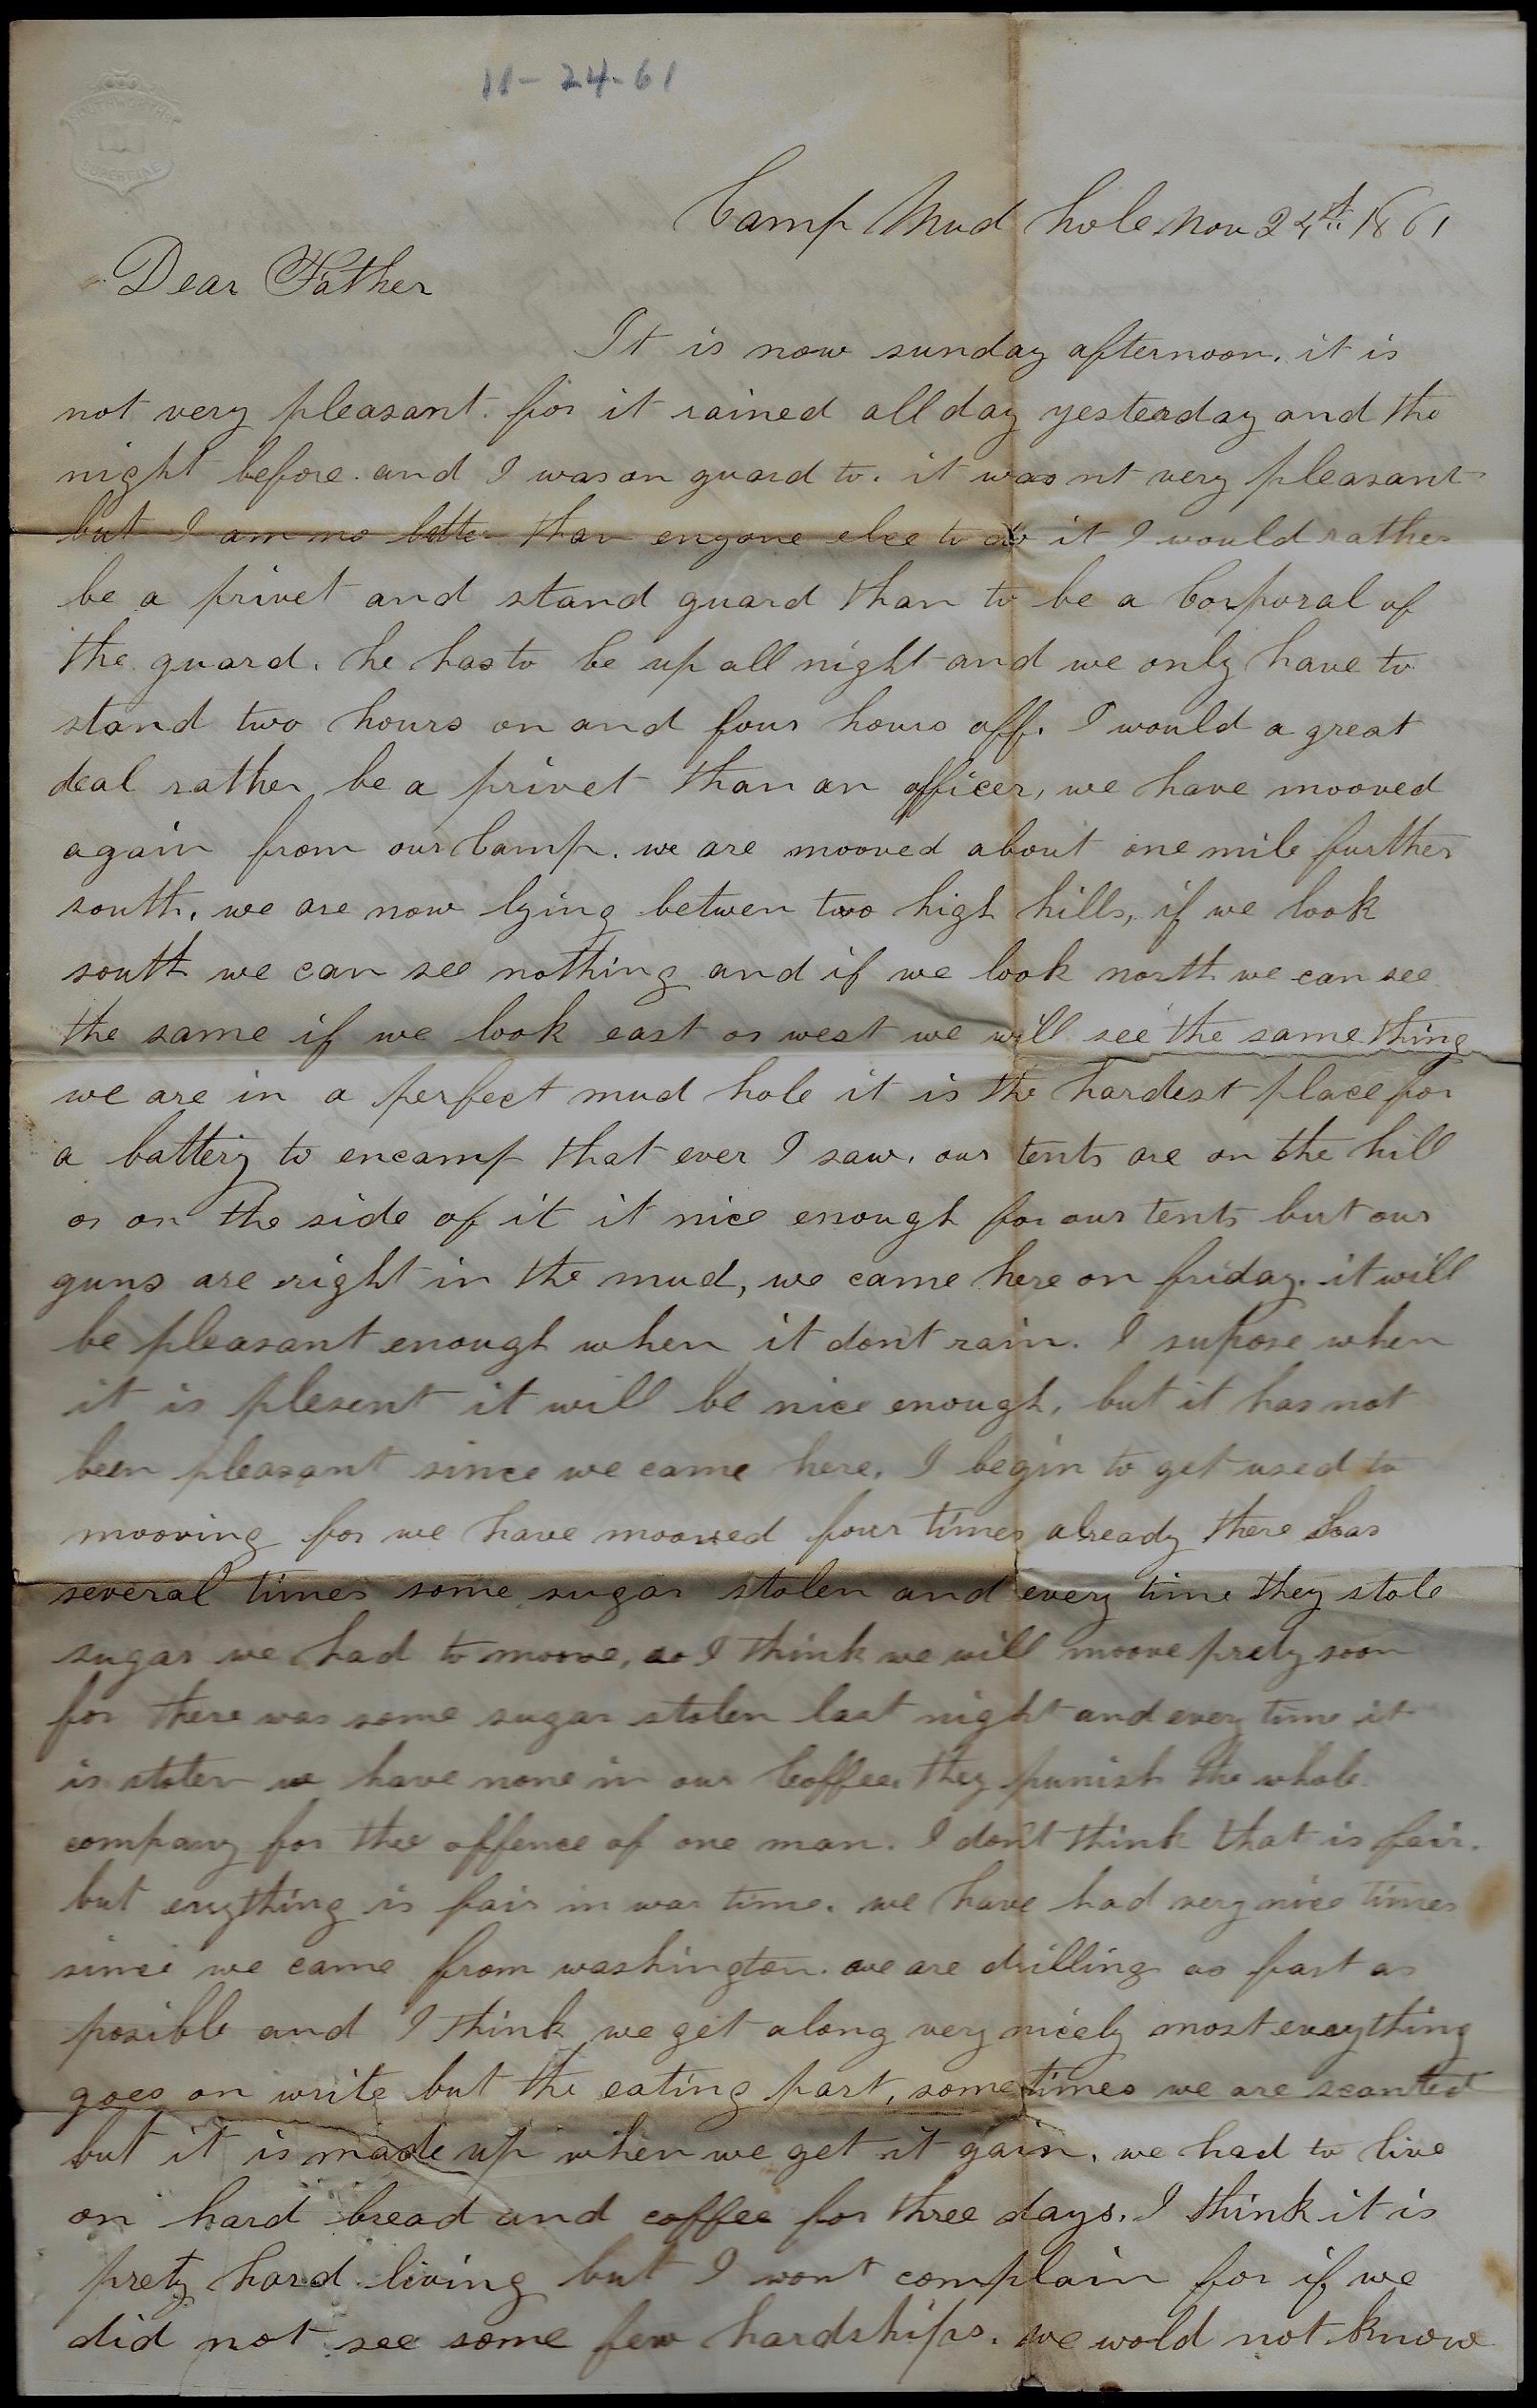 11-24-61
Camp Mud hole Nov 24th 1861
Dear Father
It is now sunday afternoon. it is
not very pleasant. for it rained all day yesterday and the
night before. and I was on guard to. it was nt very pleasant
but I am no better than enyone else to do it I would rather
be a privet and stand guard than to be a Corporal of
the guard. he has to be up all night and we only have to
stand two hours on and four hours off. I would a great
deal rather be a privet than an officer, we have mooved
again from our Camp. we are mooved about one mile further
south. we are now lying betwen two high hills, if we look
south we can see nothing and if we look north we can see
the same if we look east or west we will see the same thing
we are in a perfect mud hole it is the hardest place for
a battery to encamp that ever I saw. our tents are on the hill
or on the side of it it nice enough for our tents but our
guns are right in the mud, we came here on friday. it will
be pleasant enough when it dont rain. I supose when
it is plesent it will be nice enough, but it has not
been pleasant since we came here. I begin to get used to
mooving for we have mooved four times already there has
several times some sugar stolen and every time they stole
sugar we had to moove, so I think we will moove prety soon
for there was some sugar stolen last night and every time it
is stolen we have none in our Coffee. they punish the whole
company for the offence of one man. I dont think that is fair.
but enything is fair in war time. we have had very nice times
since we came from washington. we are drilling as fast as
posible and I think we get along very nicely most eveything
goes on write but the eating part, sometimes we are scanted
but it is made up when we get it gain. we had to live
on hard bread and coffee for three days. I think it is
prety hard living but I wont complain for if we
did not see some few hardships. we wold not know